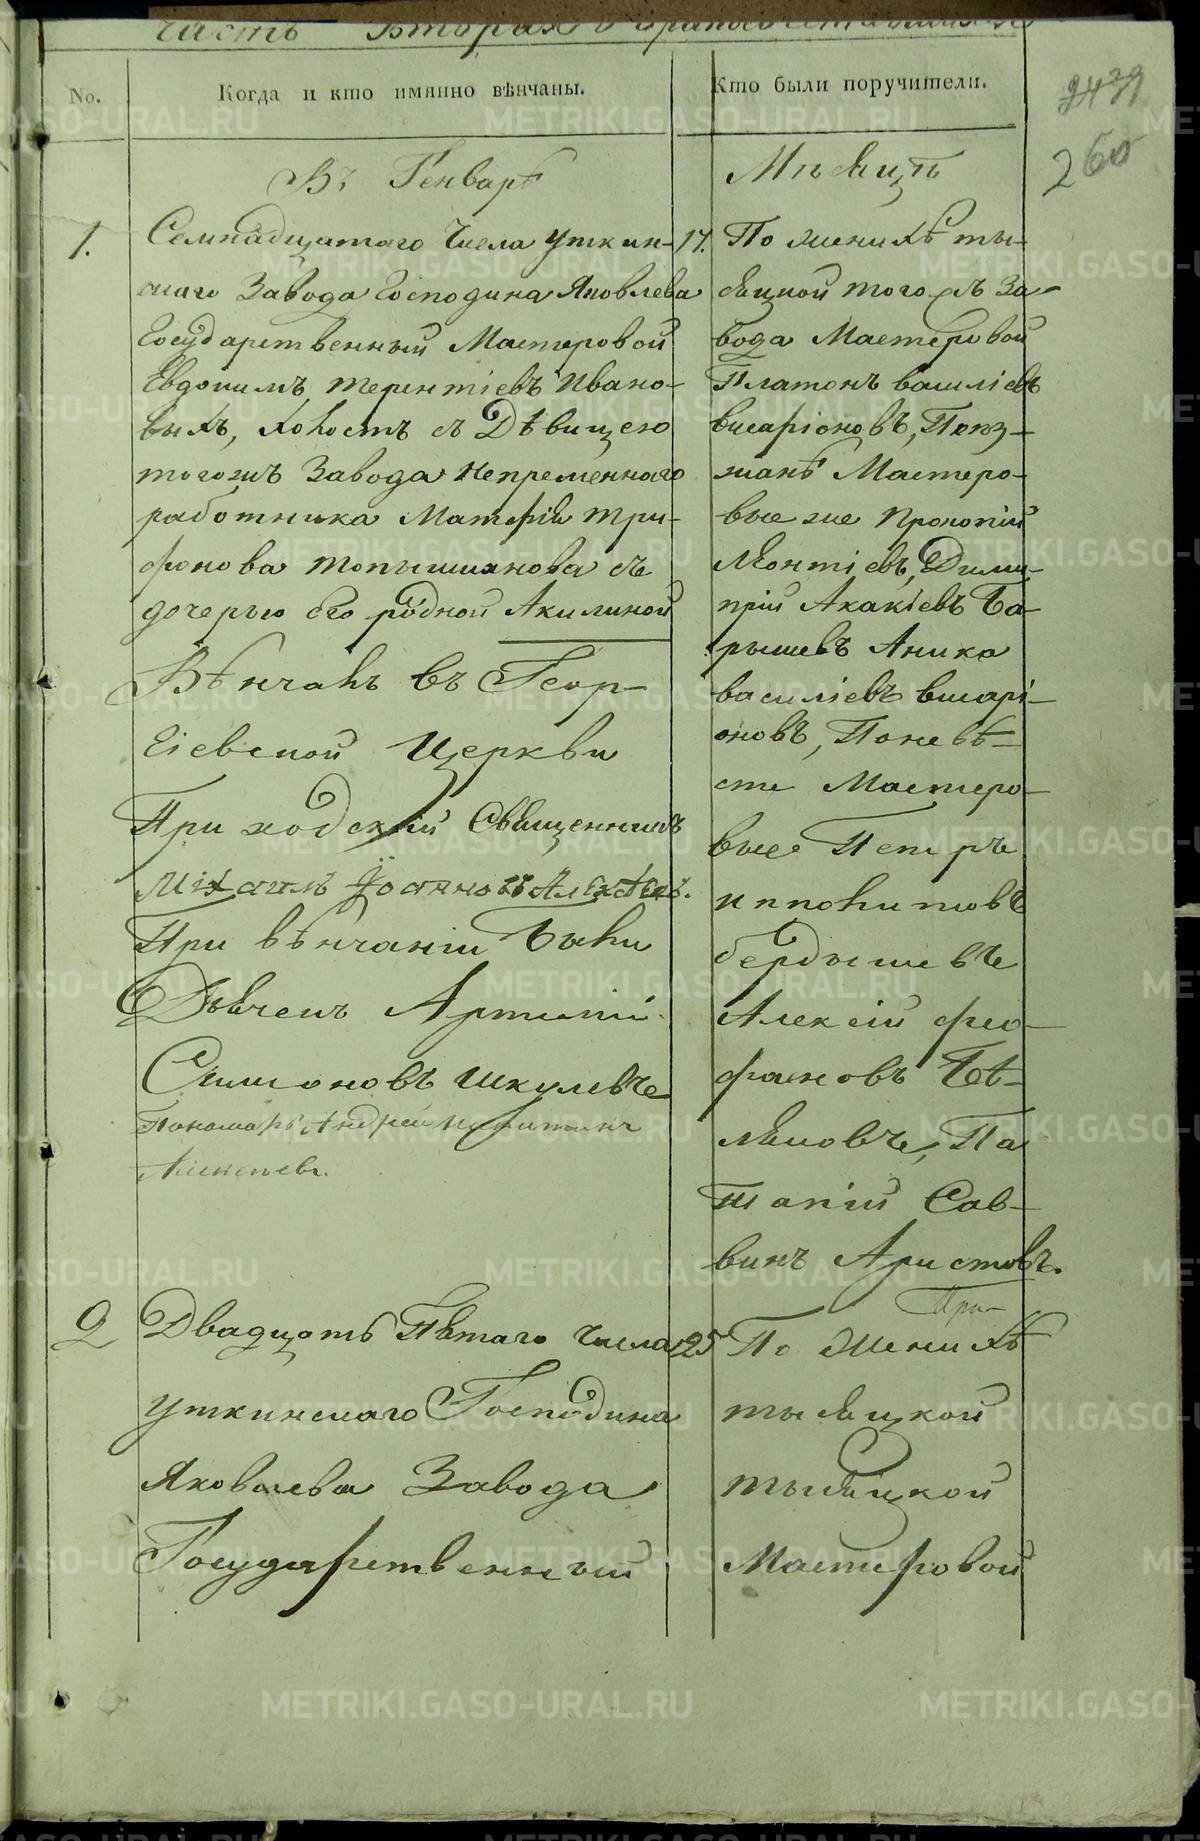 Часть Вторая о бракосочетавшихся
No.
Когда и кто имянно вѣнчаны.
Кто были поручители.
260
Въ Генварѣ
Мѣсяцѣ
1.
Семнадцатаго Числа Уткин-
скаго Завода Господина Яковлева
Государственный Мастеровой
Евдокимъ терентіевъ Ивано-
выхъ, холостъ съ Дѣвицею
тогожъ Завода Непременнаго
работника Матфія Три-
фонова
дочерью его родной Акилиной
Вѣнчалъ въ Геор-
гіевской Церкви
Приходскій Священникъ
Михаилъ Іоанновъ
При вѣнчаніи были
Дьячекъ Артемій
Симоновъ Шкулевъ
Пономарь Андрей Никитинъ
17.
По женихѣ ты-
сяцкой тогожъ За-
вода Мастеровой
Платонъ василіевъ
висаріоновъ, Поез-
жанѣ Мастеро-
вые же Прокопій
Леонтіевъ, Дими-
трій Акакіевъ Ба-
рышевъ Аника
василіевъ висарі-
оновъ, Поневѣ-
сте Мастеро-
вые Петръ
ипполитовъ
бердышевъ
Алексій Фео-
фановъ Бѣ-
ляковъ, Па
тапій Сав-
винъ Аристовъ.
При-
2
Двадцать Пятаго числа
Уткинскаго Господина
Яковлева Завода
Государственный
25
По Женихѣ
тысяцкой
тысяцкой
Мастеровой
METRIKI.GASO-URAL.RU